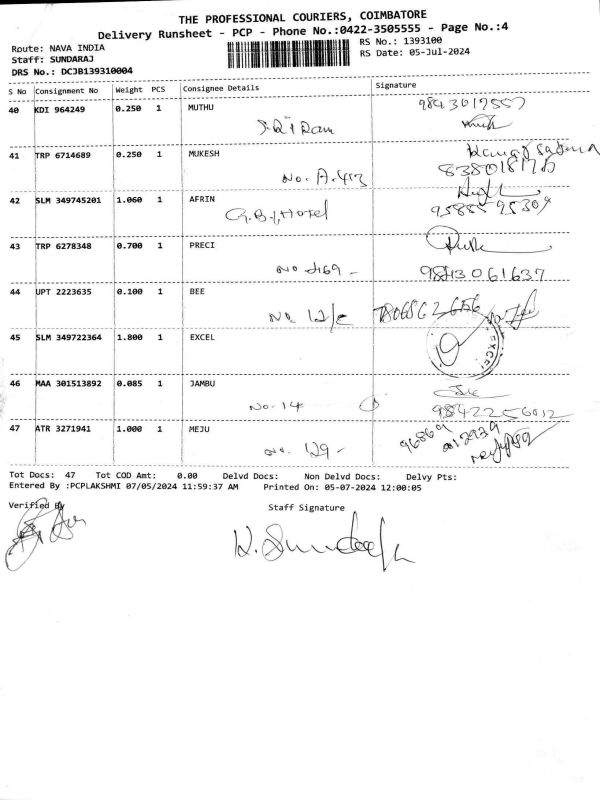 THE PROFESSIONAL COURIERS, COIMBATORE
Delivery Runsheet - PCP - Phone No.:0422-3505555 - Page No.:4
Route: NAVA INDIA
RS No.: 1393100
Staff: SUNDARAJ
RS Date: 05-Jul-2024
DRS No.: DCJB139310004
S No Consignment No Weight PCS Consignee Details Signature
40 KDI 964249 0.250 1 MUTHU 9843017557
Sri Ram
41 TRP 6714689 0.250 1 MUKESH
No. A.413
42 SLM 349745201 1.060 1 AFRIN
G.B., Hotel 9588595309
43 TRP 6278348 0.700 1 PRECI
No 9843061637
44 UPT 2223635 0.100 1 BEE
No. 12/C
45 SLM 349722364 1.800 1 EXCEL
EXCEL
46 MAA 301513892 0.085 1 JAMBU
No. 14 9842256012
47 ATR 3271941 1.000 1 MEJU
No. 129 -
Tot Docs: 47 Tot COD Amt: 0.00 Delvd Docs: Non Delvd Docs: Delvy Pts:
Entered By :PCPLAKSHMI 07/05/2024 11:59:37 AM Printed On: 05-07-2024 12:00:05
Verified By Staff Signature